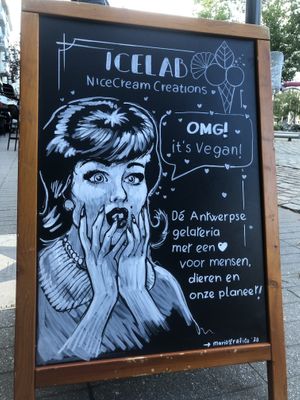 ICELAB
NiceCream Creations
OMG!
it's Vegan!
Dé Antwerpse
gelateria
met een ♥
voor mensen,
dieren en
onze planeet!
→ mariografico '20